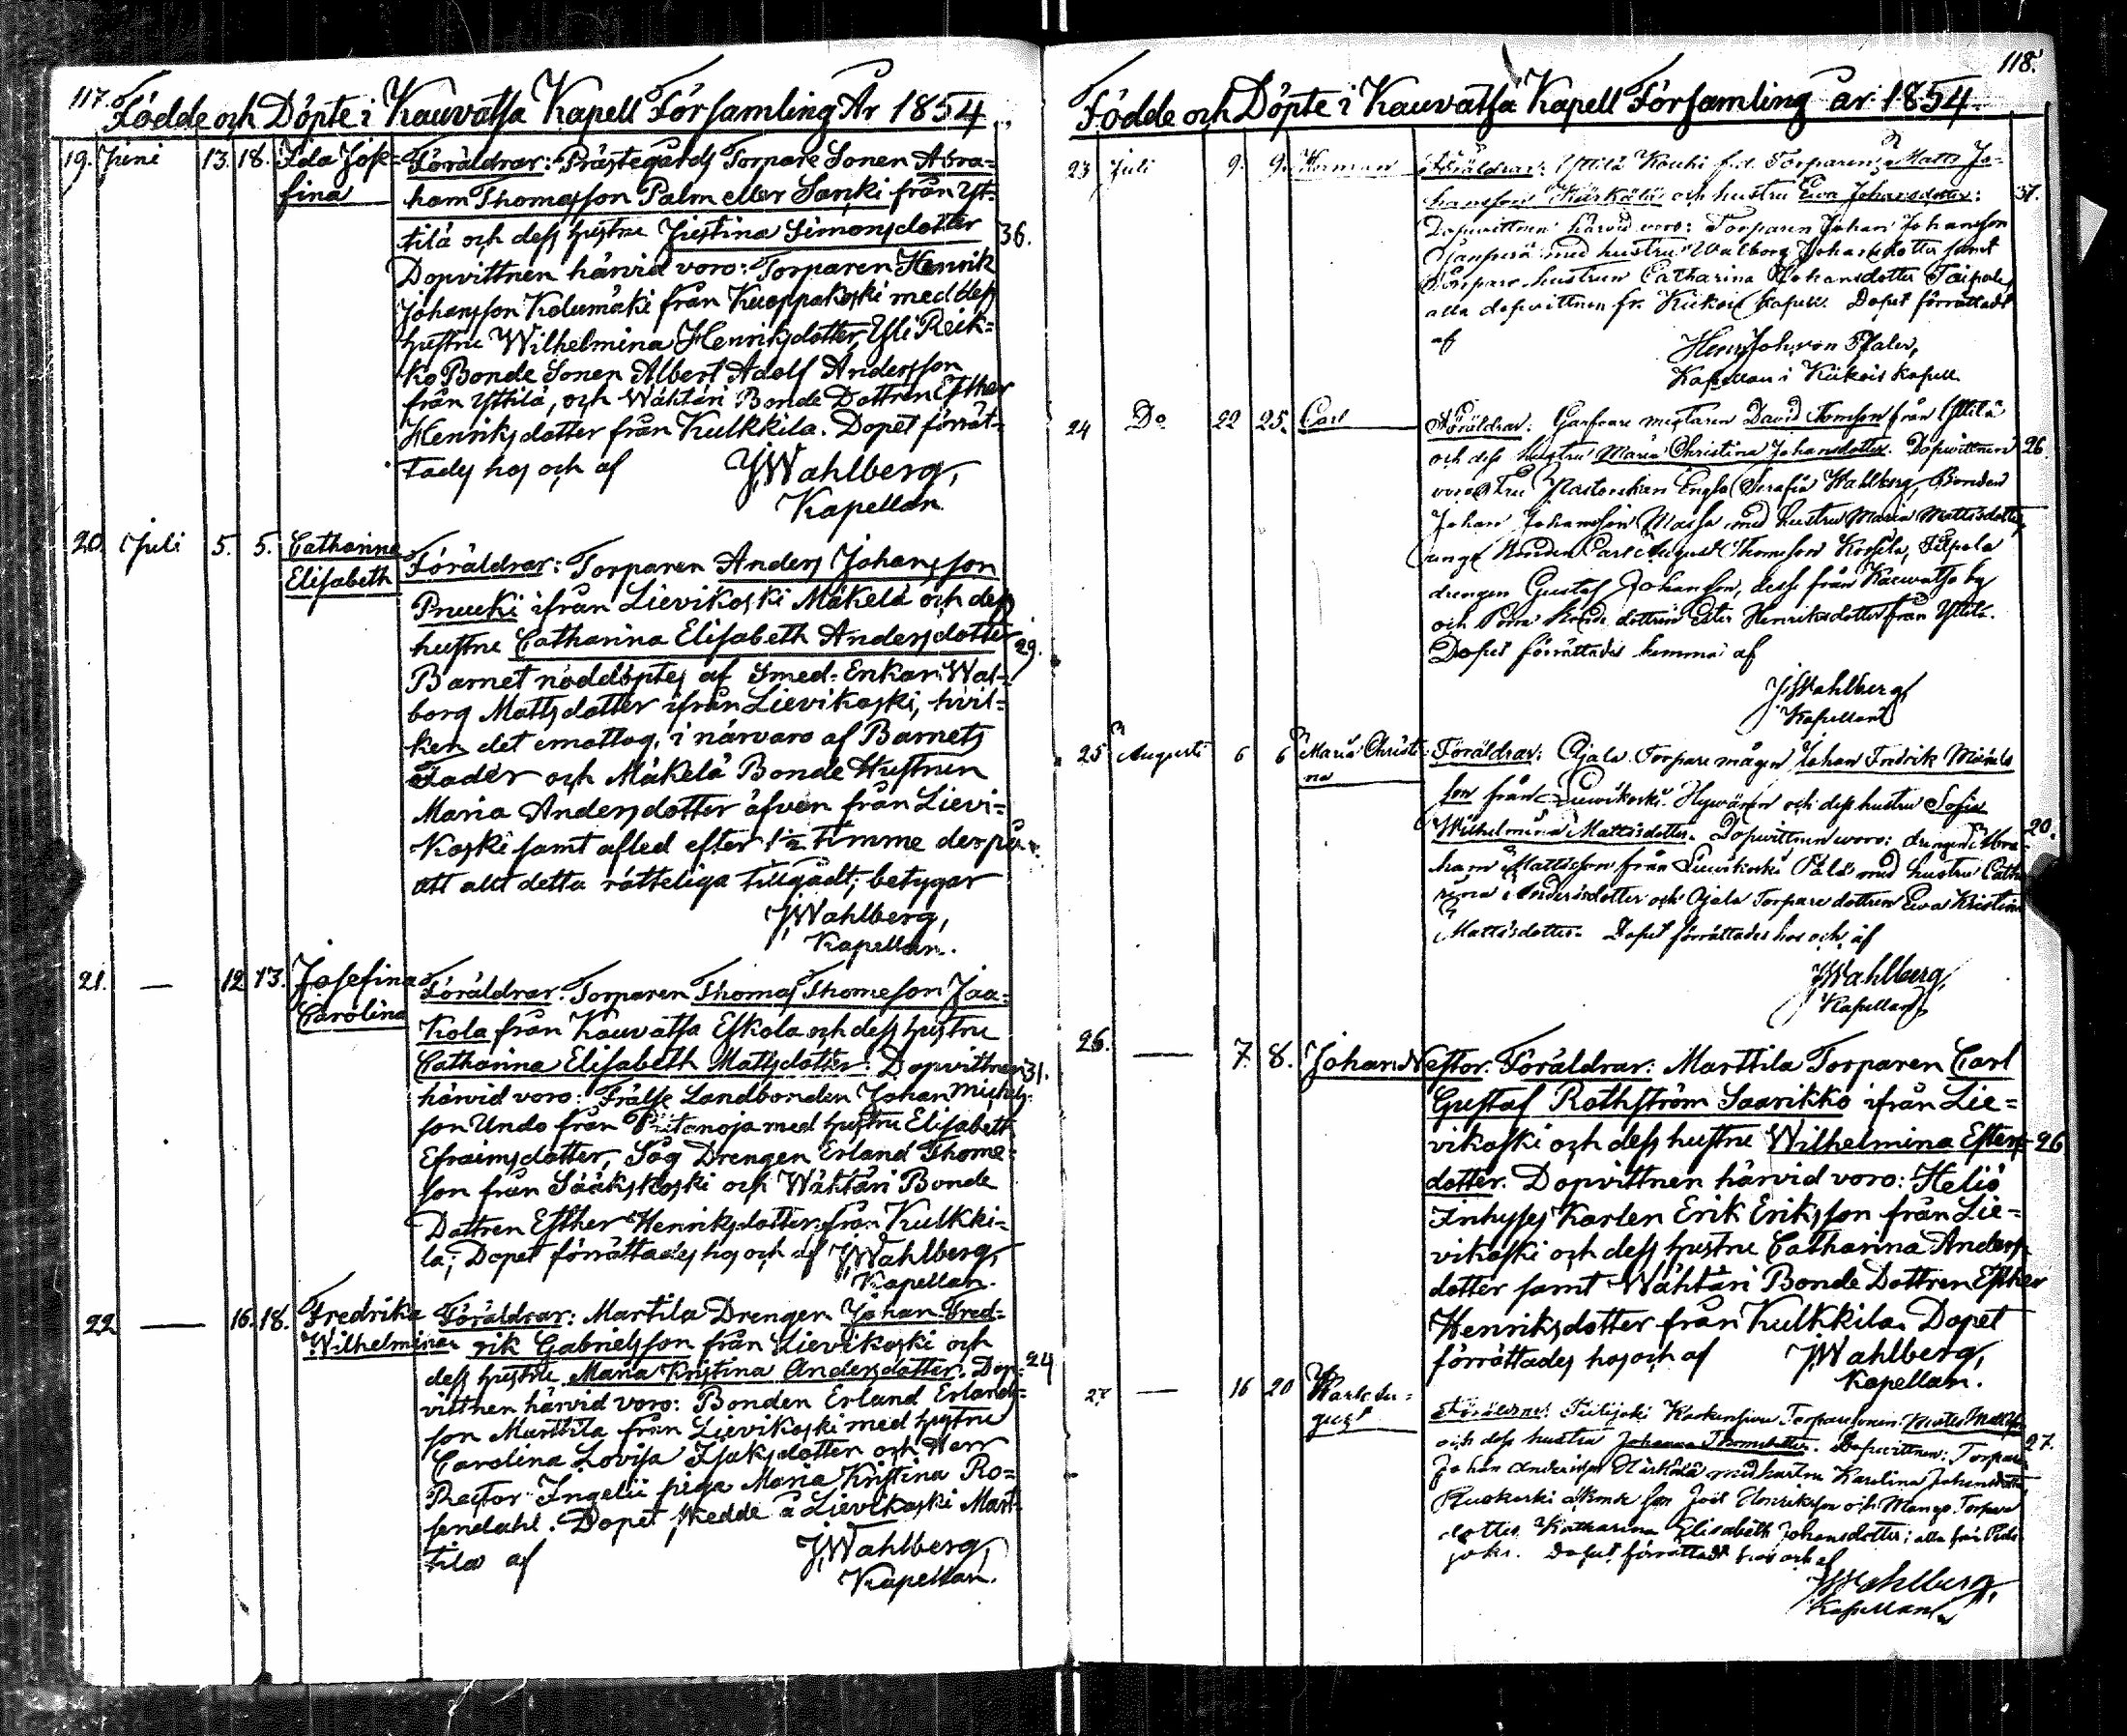 117.
Födde och Döpte i Kauvatsa Kapell Församling År 1854.
19. Juni 13. 18. Ida Jose-
fina
Föräldrar: Prästegårds Torpare Sonen Abra-
ham Thomasson Palm eller Sanki från Yt-
tilä och dess hustru Justina Simonsdotter 36.
Dopvittnen härvid voro: Torparen Henrik
Johansson Kolumäki från Kuoppakoski med dess
hustru Wilhelmina Henriksdotter, Yli Reik-
ko Bonde Sonen Albert Adolf Andersson
från Yttilä, och Wähtäri Bonde Dottren Esther
Henriksdotter från Kulkkila. Dopet förrät-
tades hos och af JWahlberg,
Kapellan.
20. Juli 5. 5. Catharina
Elisabeth
Föräldrar: Torparen Anders Johansson
Pruuki ifrån Lievikoski Mäkelä och dess
hustru Catharina Elisabeth Andersdotter 29.
Barnet nöddöptes af Smed-Enkan Wal-
borg Mattsdotter ifrån Lievikoski, hvil-
ken det emottog, i närvaro af Barnets
Fader och Mäkelä Bonde Hustrun
Maria Andersdotter äfven från Lievi-
koski samt afled efter 1½ timme derpå
att allt detta rätteliga tillgådt; betygar
JWahlberg,
Kapellan.
21. — 12 13. Josefina
Carolina
Föräldrar: Torparen Thomas Thomeson Jaa-
kola från Kauvatsa Eskola och dess hustru
Catharina Elisabeth Mattsdotter: Dopvittnen 31.
härvid voro: Frälse Landbonden Johan Michels-
son Undo från Piitanoja med hustru Elisabeth
Efraimsdotter, Såg Drengen Erland Thome-
son från Sääkskoski och Wähtäri Bonde
Dottren Esther Henriksdotter från Kulkki-
la; Dopet förrättades hos och af JWahlberg,
Kapellan.
22 — 16. 18. Fredrika
Wilhelmina
Föräldrar: Martila Drengen Johan Fred-
rik Gabrielsson från Lievikoski och
dess hustru Maria Kristina Andersdotter. Dop- 24
vittnen härvid voro: Bonden Erland Erlands-
son Marttila från Lievikoski med hustru
Carolina Lovisa Isaksdotter och Herr
Pastor Ingelii piga Maria Kristina Ro-
sendahl. Dopet skedde å Lievikoski Mart-
tila af JWahlberg,
Kapellan.
118.
Födde och Döpte i Kauvatsa Kapell Församling år 1854.
23 Juli 9. 9. Herman
Föräldrar: Yttilä Kouki f.d. Torparen Matts Jo-
hansson Kärkälä och hustru Eva Johansdotter: 31.
Dopvittnen härvid voro: Torparen Johan Johansson
med hustru Walborg Johansdotter samt
Torpare hustrun Catharina Johansdotter Taipale,
alla dopvittnen fr. Kiikois kapell. Dopet förrättadt
af Henr Joh von Pfaler,
Kapellan i Kiikois kapell.
24 Do 22 25. Carl
Föräldrar: Garfvare mästaren David Thomson från Yttilä
och dess hustru Maria Christina Johansdotter. Dopvittnen 26.
voro: Fru Pastorskan Engla Serafia Wahlberg, Bonden
Johan Johansson Massa med hustru Maria Mattsdotter,
unge Bonden Carl August Thomsson Kossila, Filpola
drengen Gustaf Johansson, desse från Kauvatsa by
och Bonde dottren Ester Henriksdotter från Yttilä.
Dopet förrättades hemma af
JWahlberg,
Kapellan
25 Augusti 6 6 Maria Christi-
na
Föräldrar: Ojala Torpare mågen Johan Fredrik Michels
son från Lievikoski Hyvärön och dess hustru Sofia
Wilhelmina Mattsdotter. Dopvittnen voro: drengen Abra- 20.
ham Mattsson från Lievikoski Pälä med hustru Catha
rina Andersdotter och Ojala Torpare dottren Eva Kristina
Mattsdotter. Dopet förrättades hos och af
JWahlberg,
Kapellan
26. — 7. 8. Johan Nestor.
Föräldrar: Marttila Torparen Carl
Gustaf Rothström Saarikko ifrån Lie-
vikoski och dess hustru Wilhelmina Esters- 26
dotter. Dopvittnen härvid voro: Heliö
Inhyses Karlen Erik Eriksson från Lie-
vikoski och dess hustru Catharina Anders-
dotter samt Wähtäri Bonde Dottren Esther
Henriksdotter från Kulkkila. Dopet
förrättades hos och af JWahlberg,
Kapellan.
27 — 16 20 Karl Au-
gust
Föräldrar: Piilijoki Torparesonen Matts Mattsson
och dess hustru Johanna Thomedotter. Dopvittnen: Torparen 27.
Johan Andersson Härkälä med hustru Karolina Johansdotter,
Ruokoski Bonde son Joel Henriksson och Torpare
dotter Katharina Elisabeth Johansdotter; alla från Piili-
joki. Dopet förrättadt hos och af
JWahlberg,
Kapellan